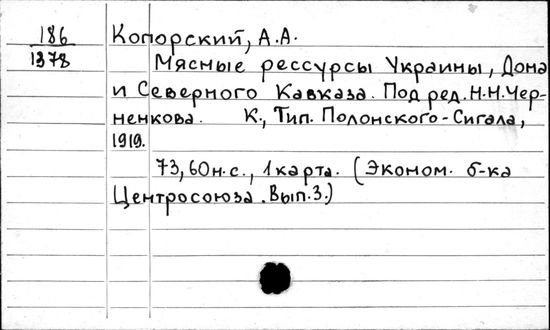 186
1378
Копорский, А.А.
Мясные рессурсы Украины, Дона
и Северного Кавказа. Под ред. Н.Н.Чер-
ненкова. К., Тип. Полонского-Сигала,
1919.
73,60 н.с., 1 карта. (Эконом. б-ка
Центросоюза. Вып.3.)